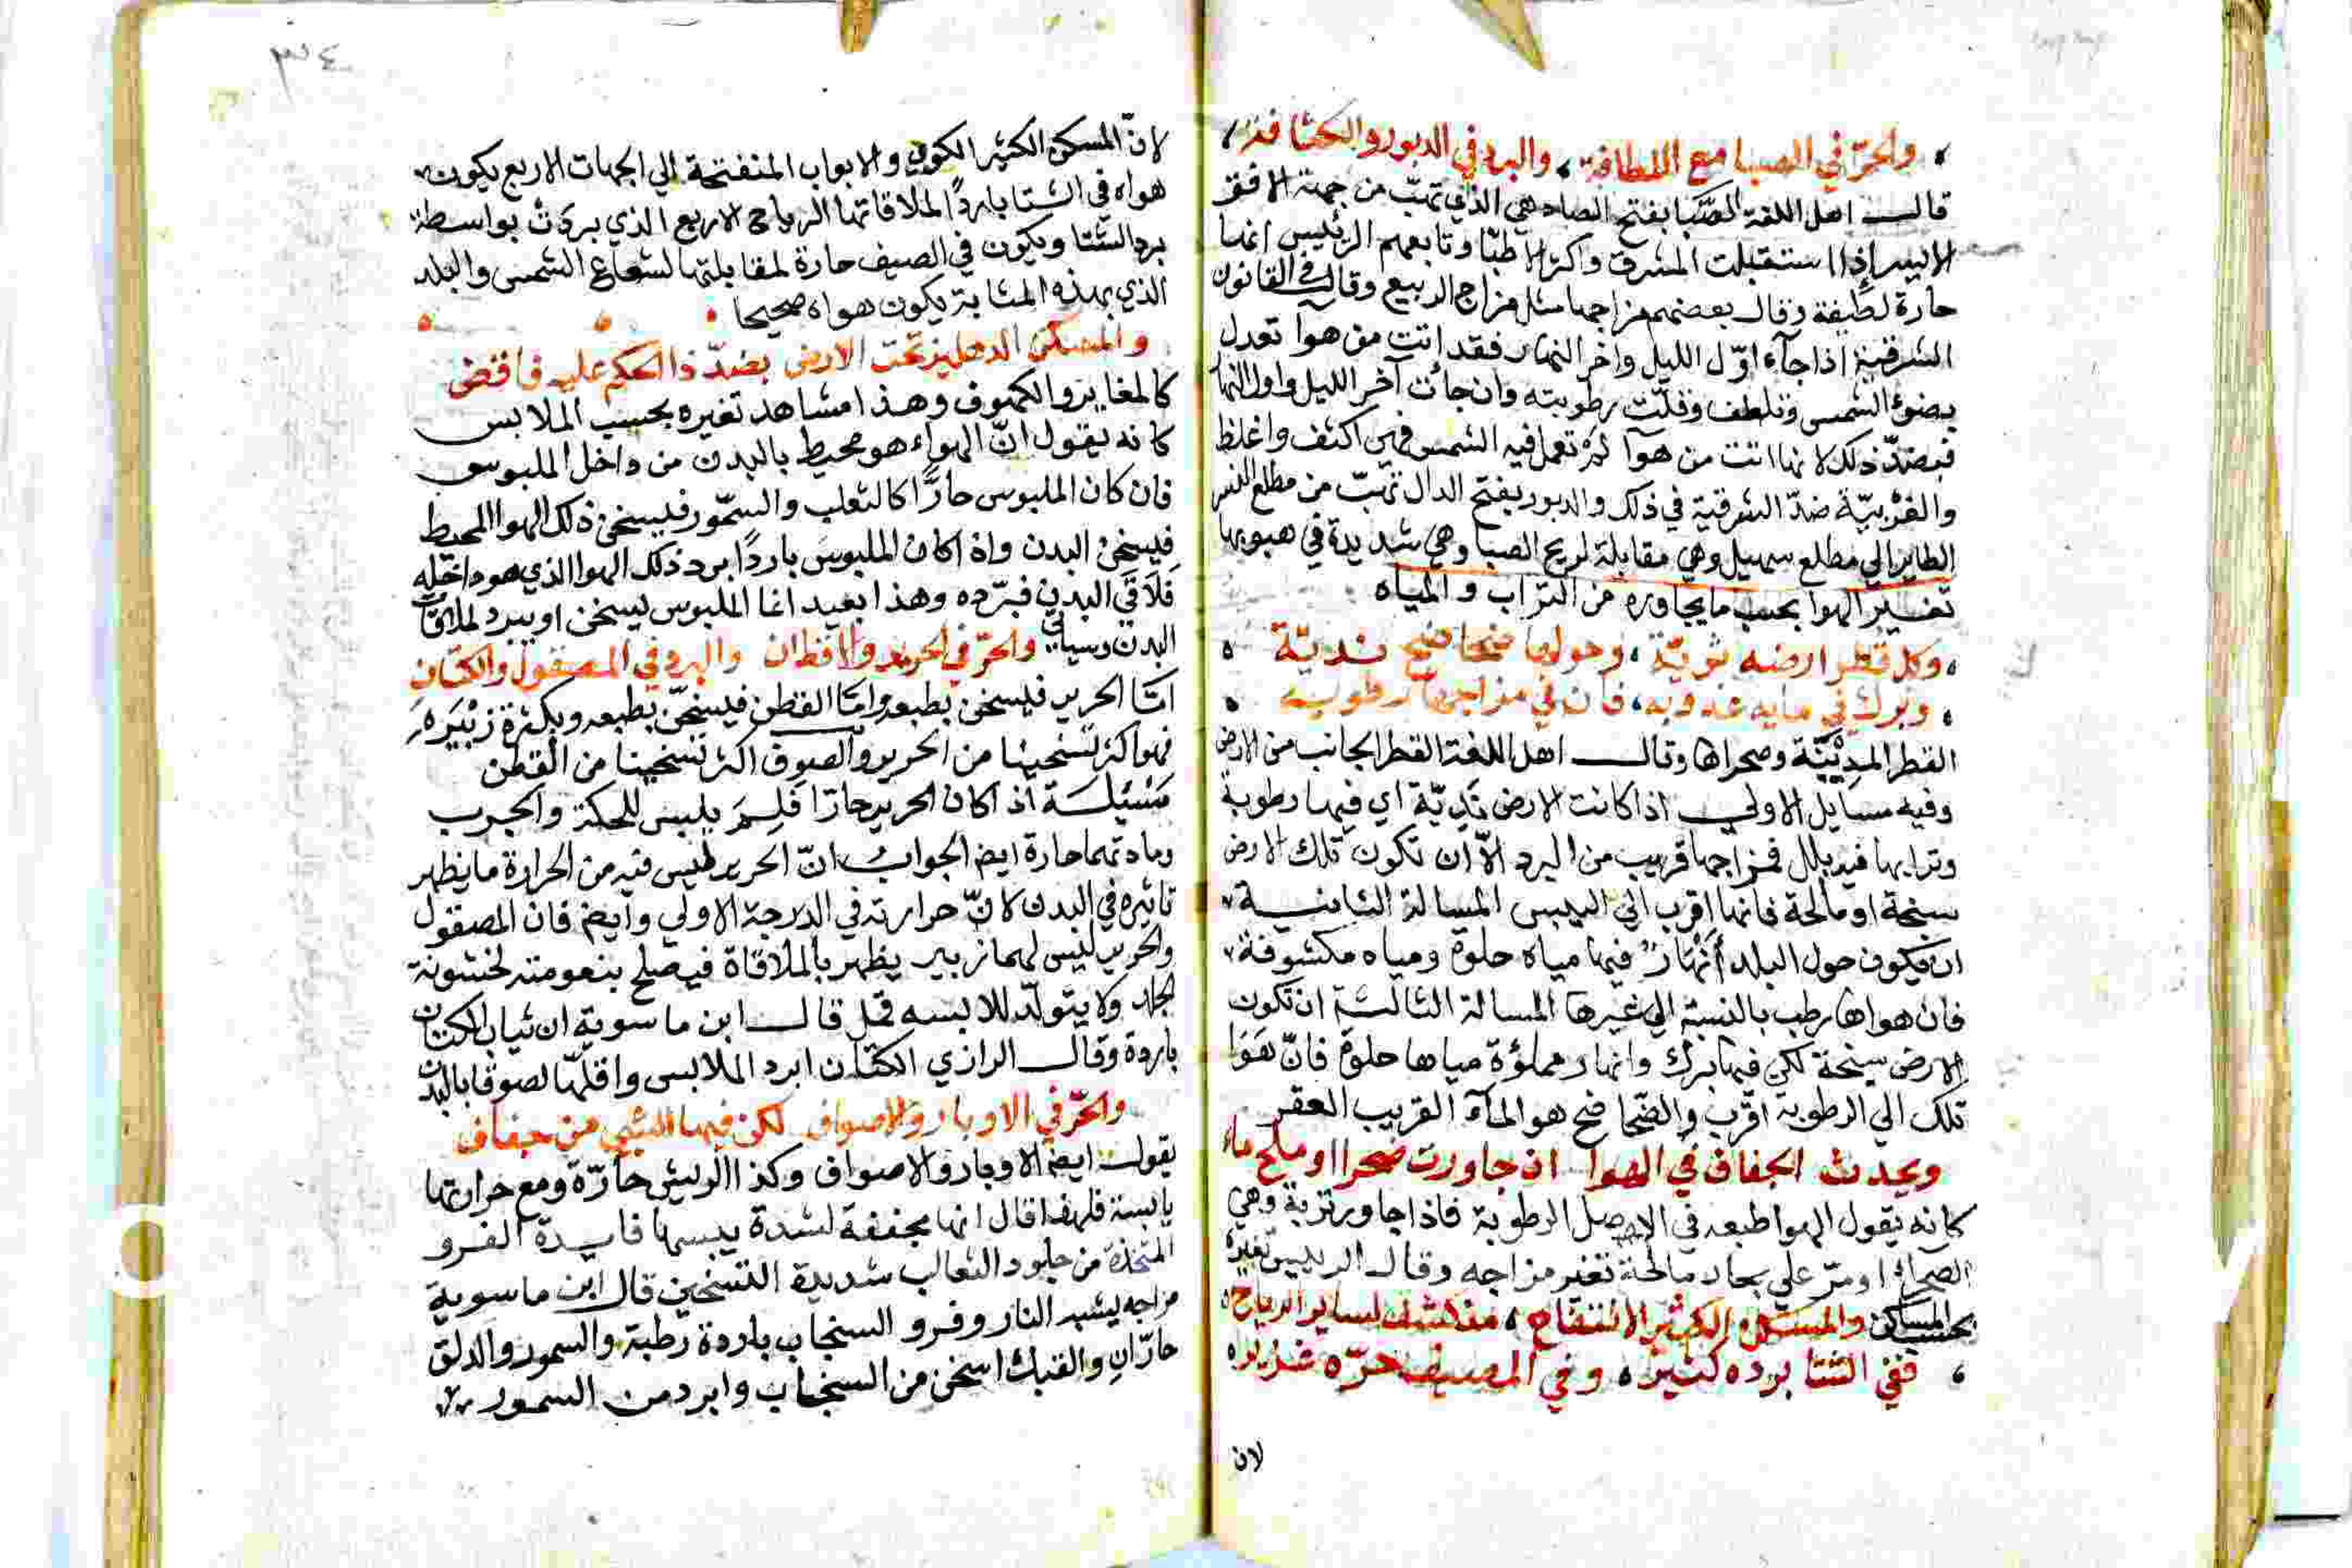 ، والحرّ في الصبا مع اللطافة ، والبرد في الدبور والكثافة ،
قالــ اهل اللغة الصَّبا بفتح الصاد هي الذي تهبّ من جهة الافق
الايسر إذا استقبلت المشرق واكثر الاطبّا وتابعهم الرئيس انها
حارة لطيفة وقال بعضهم مزاجها مثل مزاج الربيع وقال في القانون
الشرقية اذا جآء اوّل الليل واخر النهار فقد اتت من هوا تعدل
بضوء الشمس وتلطف وقلّت رطوبته وان جائت آخر الليل واول النهار
فبضدّ ذلك لانها اتت من هوآ لم تعمل فيه الشمس فهي اكثف واغلظ
والغربيّة ضدّ الشرقية في ذلك والدبور بفتح الدال تهبّ من مطلع النسر
الطاير الي مطلع سهيل وهي مقابلة لريح الصبا وهي شديدة في هبوبها
تغيير الهوا بحسب ما يجاوره من التراب والمياه
، وكل قطر ارضه ثريّة ، وحولها ضحاضح نديّة ،
، وبرك في مايه عذوبه ، فان في مزاجها رطوبه ،
القطر المدِيْنَة وصحراها وقالــ اهل اللغة القطر الجانب من الارض
وفيه مسايل الاولي اذا كانت الارض نَدِيّة اي فيها رطوبة
وترابها فيه بلل فمزاجها قريب من البرد الاّ ان تكون تلك الارض
سبخة او مالحة فانها اقرب الي اليبس المسالة الثانيــة
ان يكون حول البلد أنْهَارٌ فيها مياه حلوة ومياه مكشوفة
فان هواها رطب بالنسبة الي غيرها المسالة الثالثة ان تكون
الارض سبخة لكن فيها برك وانهار مملؤة مياها حلوة فانّ هَوَا
تلك الي الرطوبة اقرب والضحاضح هو المآء القريب العقر
ويحدث الجفاف في الهوا ان جاورت صحرا او ملح ماء
كانه يقول الهوا طبعه في الاصل الرطوبة فاذا جاور تربة وهي
الصحراء او مرّ علي بحار مالحة تغير مزاجه وقالــ الرييس تغيره
بحسب المساكن والمسكن الكثير الانفتاح ، منكشف لساير الرياح ،
، ففي الشتا برده كثير ، وفي المصيف حرّه غزير ،
لان
٣٤
لانّ المسكن الكثير الكوي والابواب المنفتحة الي الجهات الاربع يكون
هواه في الشتا باردًا لملاقاتها الرياح الاربع الذي بردت بواسطة
برد الشتا ويكون في الصيف حارة لمقابلتها لشعاع الشمس والبلد
الذي بهذه المثابة يكون هواه صحيحا
والمسكن الدهليز تحت الارض بضدّ ذا الحكم عليه فاقض
كالمغاير والكهوف وهذا مشاهد تغيره بحسب الملابس
كانه يقول انّ الهواء هو محيط بالبدن من داخل الملبوس
فان كان الملبوس حارًّا كالثعلب والسمّور فليسخن ذلك الهوا المحيط
فيسخن البدن واذ اكان الملبوس باردًا برد ذلك الهوا الذي هو داخله
فلاقي البدن فبرّده وهذا بعيد انما الملبوس يسخن او يبرد لملاقات
البدن وسياتي والحرّ في الحرير والاقطان والبرد في المصقول والكتان
امّا الحرير فيسخن بطبعه وامّا القطن فيسخن بطبعه وبكثرة زِئبَرِه
فهو اكثر تسخينا من الحرير والصوف اكثر تسخينا من القطن
مَسْئلة اذ اكان الحرير حارًا فَلِمَ يلبس للحكة والجرب
ومادتهما حارة ايضا الجوابُ انّ الحرير ليس فيه من الحرارة ما يظهر
تاثيره في البدن لانّ حرارته في الدرجة الاولي وايضا فان المصقول
والحرير ليس لهما زيبر يظهر بالملاقاة فيصلح بنعومته لخشونة
الجلد ولا يتولّد للابسه قمل قالــ ابن ماسوية ان ثياب الكتان
باردة وقالــ الرازي الكتان ابرد الملابس واقلّها لصوقا بالبدن
والحرّ في الاوبار والاصواف لكن فيها الشيي من جفاف
يقولــ ايضا الاوبار والاصواف وكذا الريش حارّة ومع حرارتها
يابسة فلهذا قال انها مجففة لشدة يبسها فايدة الفرو
المتخذة من جلود الثعالب شديدة التسخين قال ابن ماسوية
مزاجه يشبه النار وفرو السنجاب باردة رطبة والسمور والدلق
حارّان والقنبك اسخن من السنجاب وابرد من السمور